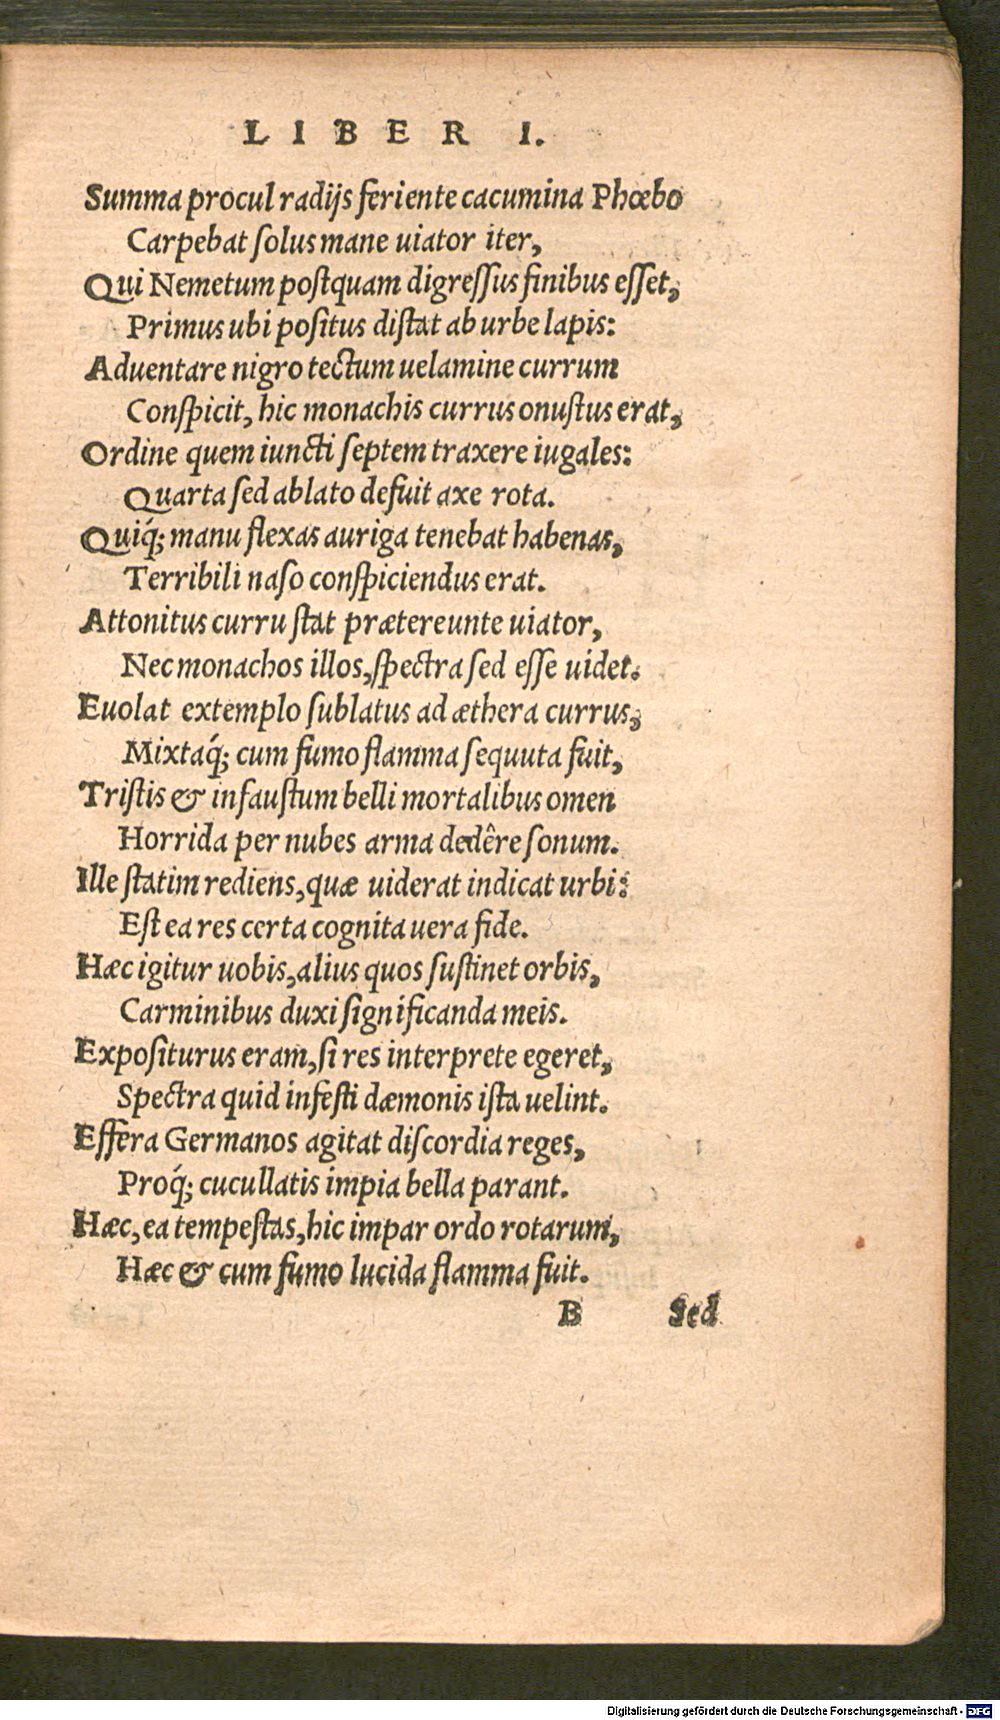 LIBER I.
Summa procul radijs feriente cacumina Phœbo
Carpebat ſolus mane uiator iter,
Qui Nemetum poſtquam digreſſus finibus eſſet,
Primus ubi poſitus diſtat ab urbe lapis:
Aduentare nigro tectum uelamine currum
Conſpicit, hic monachis currus onuſtus erat,
Ordine quem iuncti ſeptem traxere iugales:
Quarta ſed ablato defuit axe rota.
Quiq́; manu flexas auriga tenebat habenas,
Terribili naſo conſpiciendus erat.
Attonitus curru ſtat prætereunte uiator,
Nec monachos illos, ſpectra ſed eſſe uidet.
Euolat extemplo ſublatus ad æthera currus,
Mixtaq́; cum fumo flamma ſequuta fuit,
Triſtis & infauſtum belli mortalibus omen
Horrida per nubes arma dedêre ſonum.
Ille ſtatim rediens, quæ uiderat indicat urbi:
Eſt ea res certa cognita uera fide.
Hæc igitur uobis, alius quos ſuſtinet orbis,
Carminibus duxi ſignificanda meis.
Expoſiturus eram, ſi res interprete egeret,
Spectra quid infeſti dæmonis iſta uelint.
Effera Germanos agitat diſcordia reges,
Proq́; cucullatis impia bella parant.
Hæc, ea tempeſtas, hic impar ordo rotarum,
Hæc & cum fumo lucida flamma fuit.
B Sed
Digitalisierung gefördert durch die Deutsche Forschungsgemeinschaft - DFG